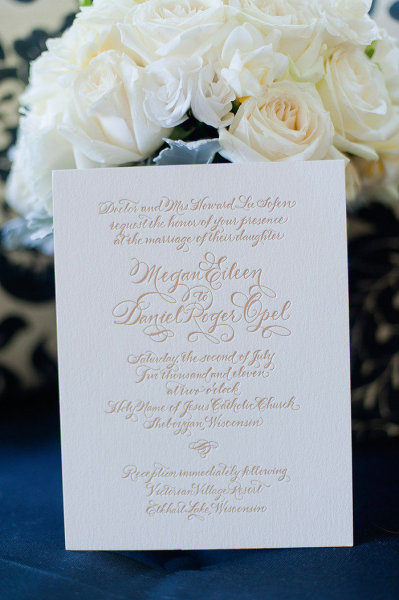 Doctor and Mrs. Howard Lee Sofen
request the honor of your presence
at the marriage of their daughter
Megan Eileen
to
Daniel Roger Opel
Saturday, the second of July
Two thousand and eleven
at two o'clock
Holy Name of Jesus Catholic Church
Sheboygan, Wisconsin
Reception immediately following
Victorian Village Resort
Elkhart Lake, Wisconsin